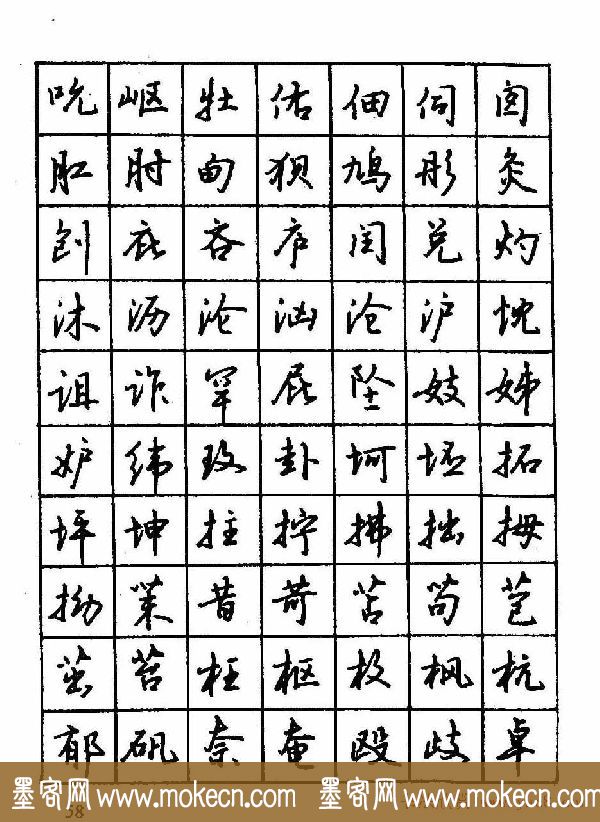 吮 岖 牡 佑 佃 伺 囱
肛 肘 甸 狈 鸠 彤 灸
刨 庇 吝 庐 闰 兑 灼
沐 沥 沦 汹 沧 沪 忱
诅 诈 罕 屁 坠 妓 姊
妒 纬 玫 卦 坷 坯 拓
坪 坤 拄 拧 拂 拙 拇
拗 茉 昔 苛 苫 苟 苞
茁 苔 枉 枢 枚 枫 杭
郁 矾 奈 奄 殴 歧 卓
墨客网 www.mokecn.com 墨客网 www.mokecn.com
58